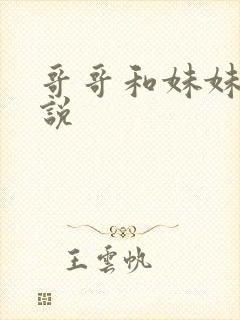 哥哥和妹妹
說
王雲帆